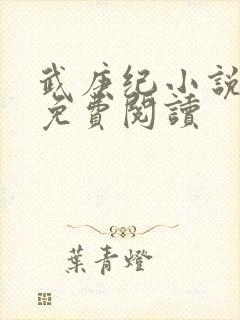 武庚纪小说
免費閱讀
葉青燈